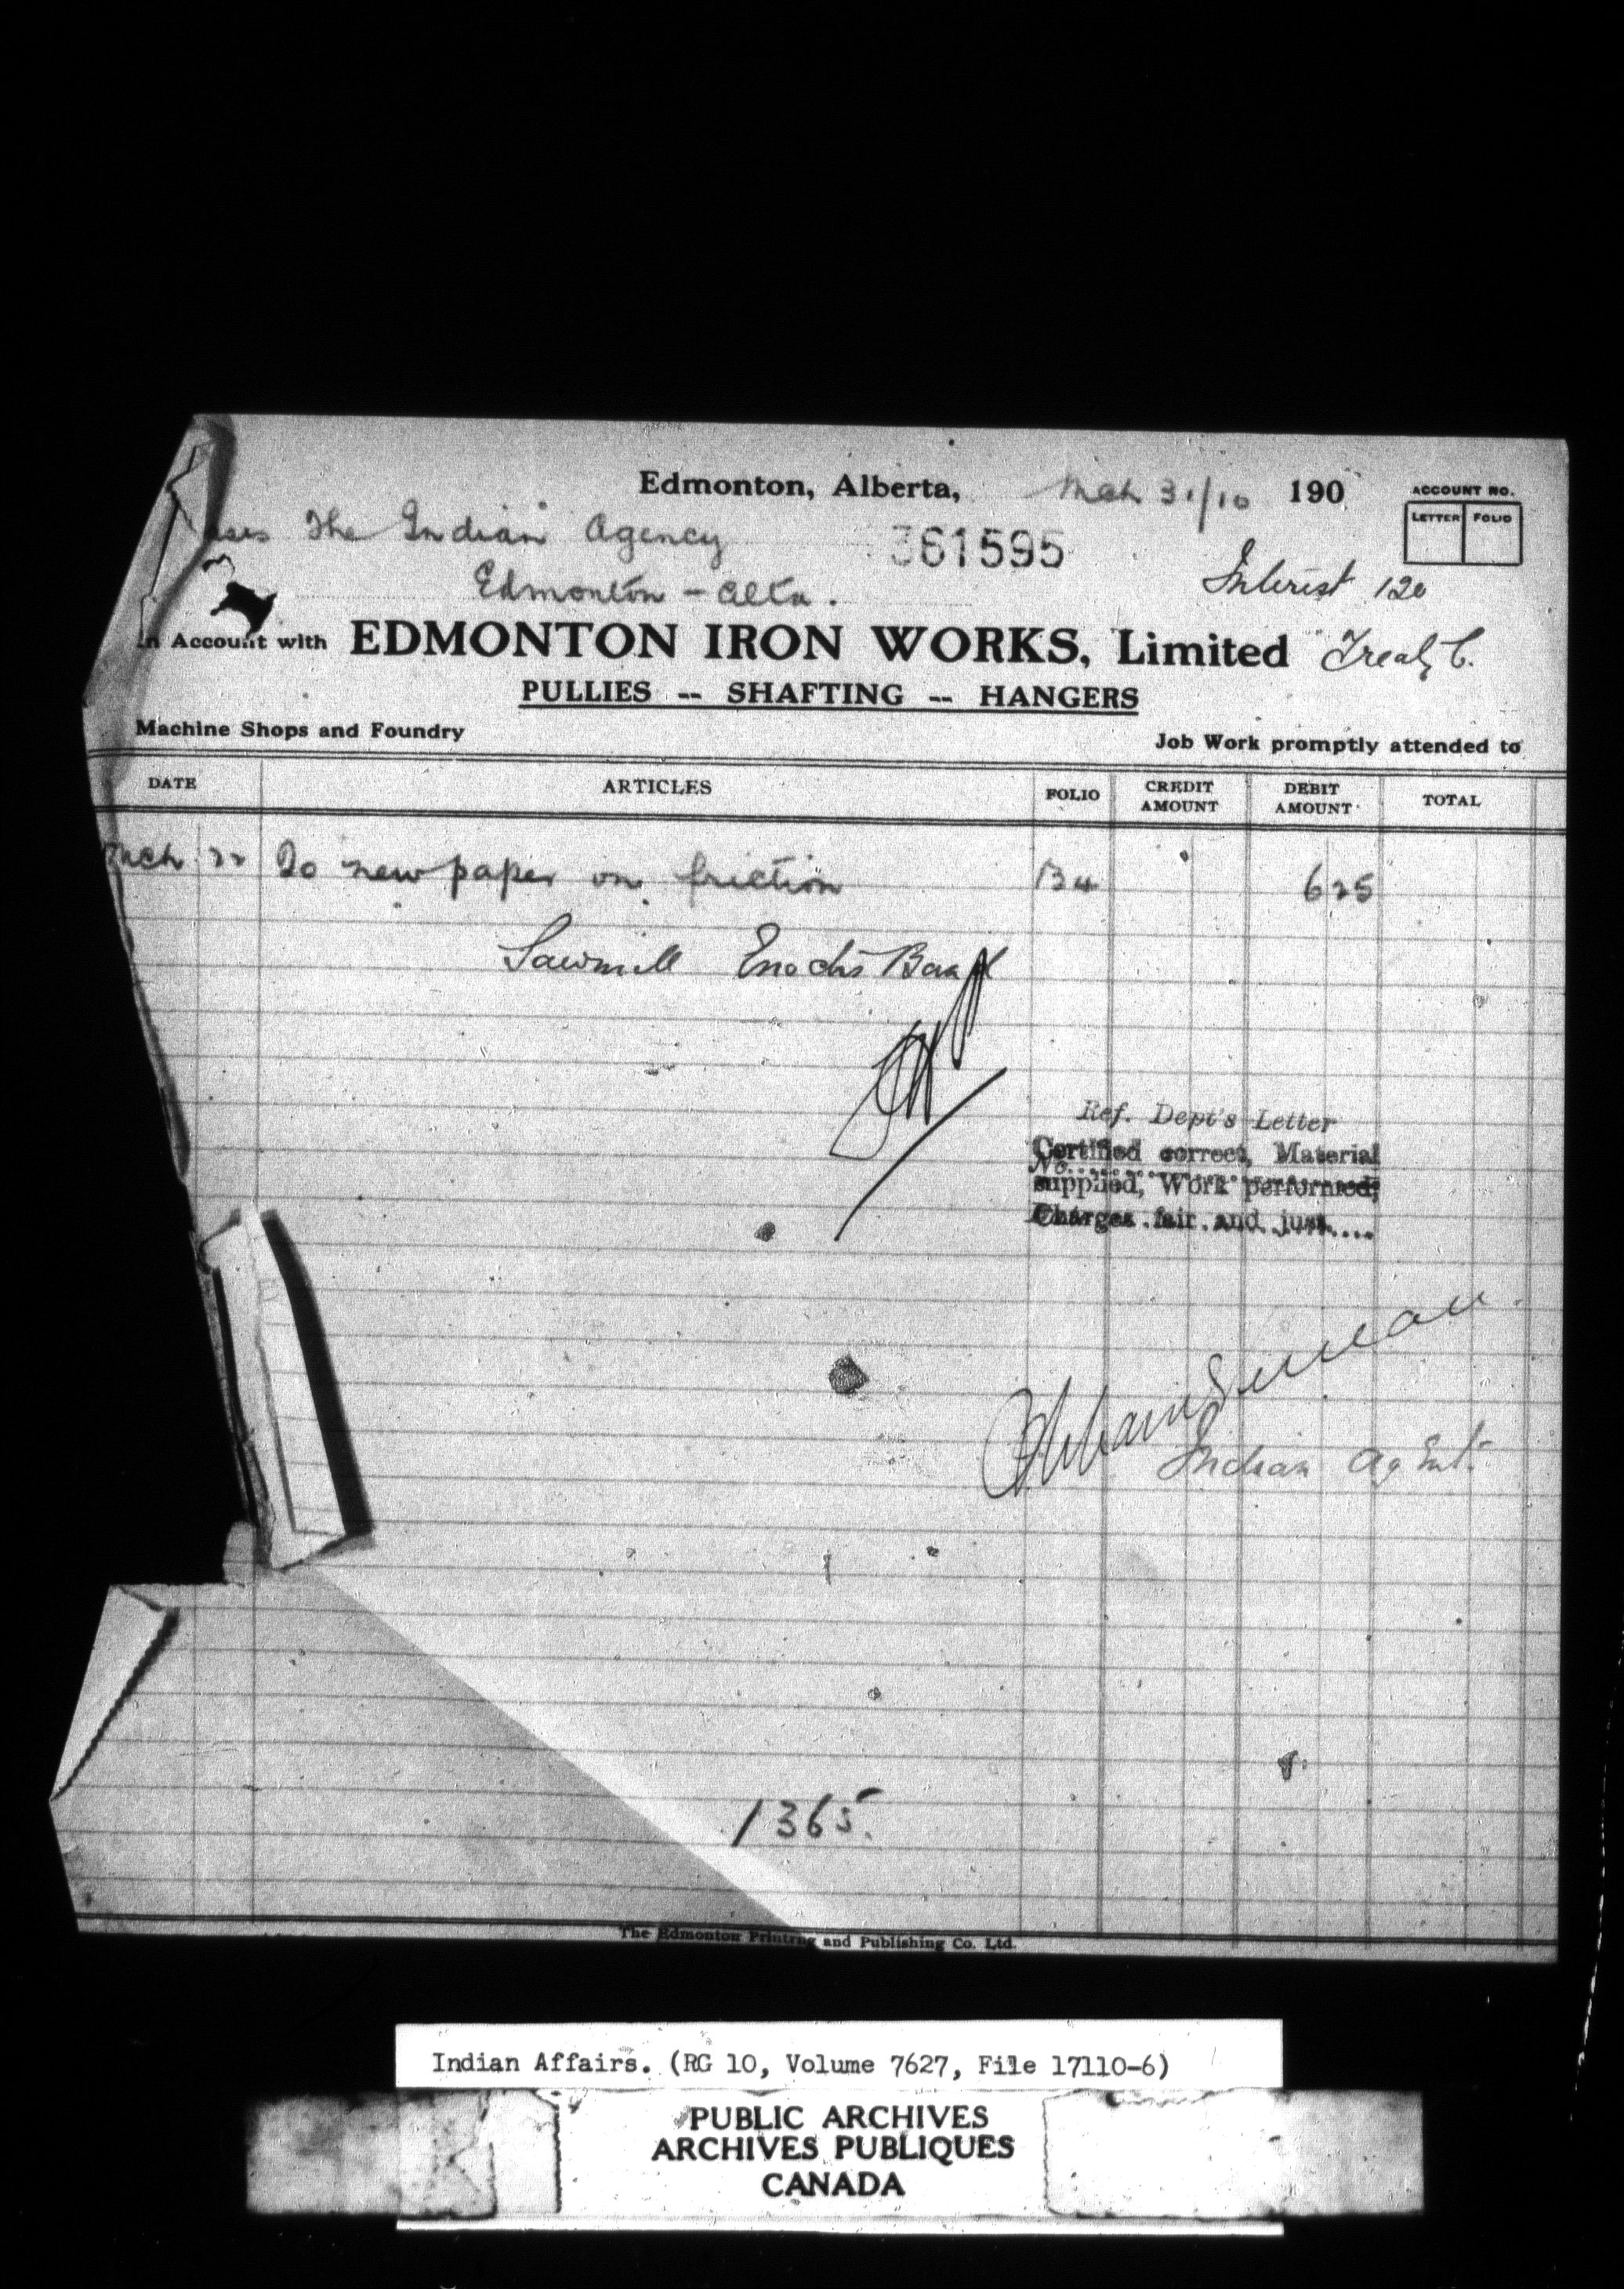 Edmonton, Alberta, Mch 31/10 190
ACCOUNT NO.
LETTER FOLIO
The Indian Agency
361595
Edmonton - Alta.
Interest 120
In Account with EDMONTON IRON WORKS, Limited
Treaty 6.
PULLIES -- SHAFTING -- HANGERS
Machine Shops and Foundry
Job Work promptly attended to
DATE ARTICLES FOLIO CREDIT AMOUNT DEBIT AMOUNT TOTAL
Mch 22 To new paper on friction B4 625
Sawmill Enochs Band
Ref. Dept's Letter
Certified correct, Material
No.
supplied, Work performed,
Charges fair and just....
Indian Agent.
1365.
The Edmonton Printing and Publishing Co. Ltd.
Indian Affairs. (RG 10, Volume 7627, File 17110-6)
PUBLIC ARCHIVES
ARCHIVES PUBLIQUES
CANADA